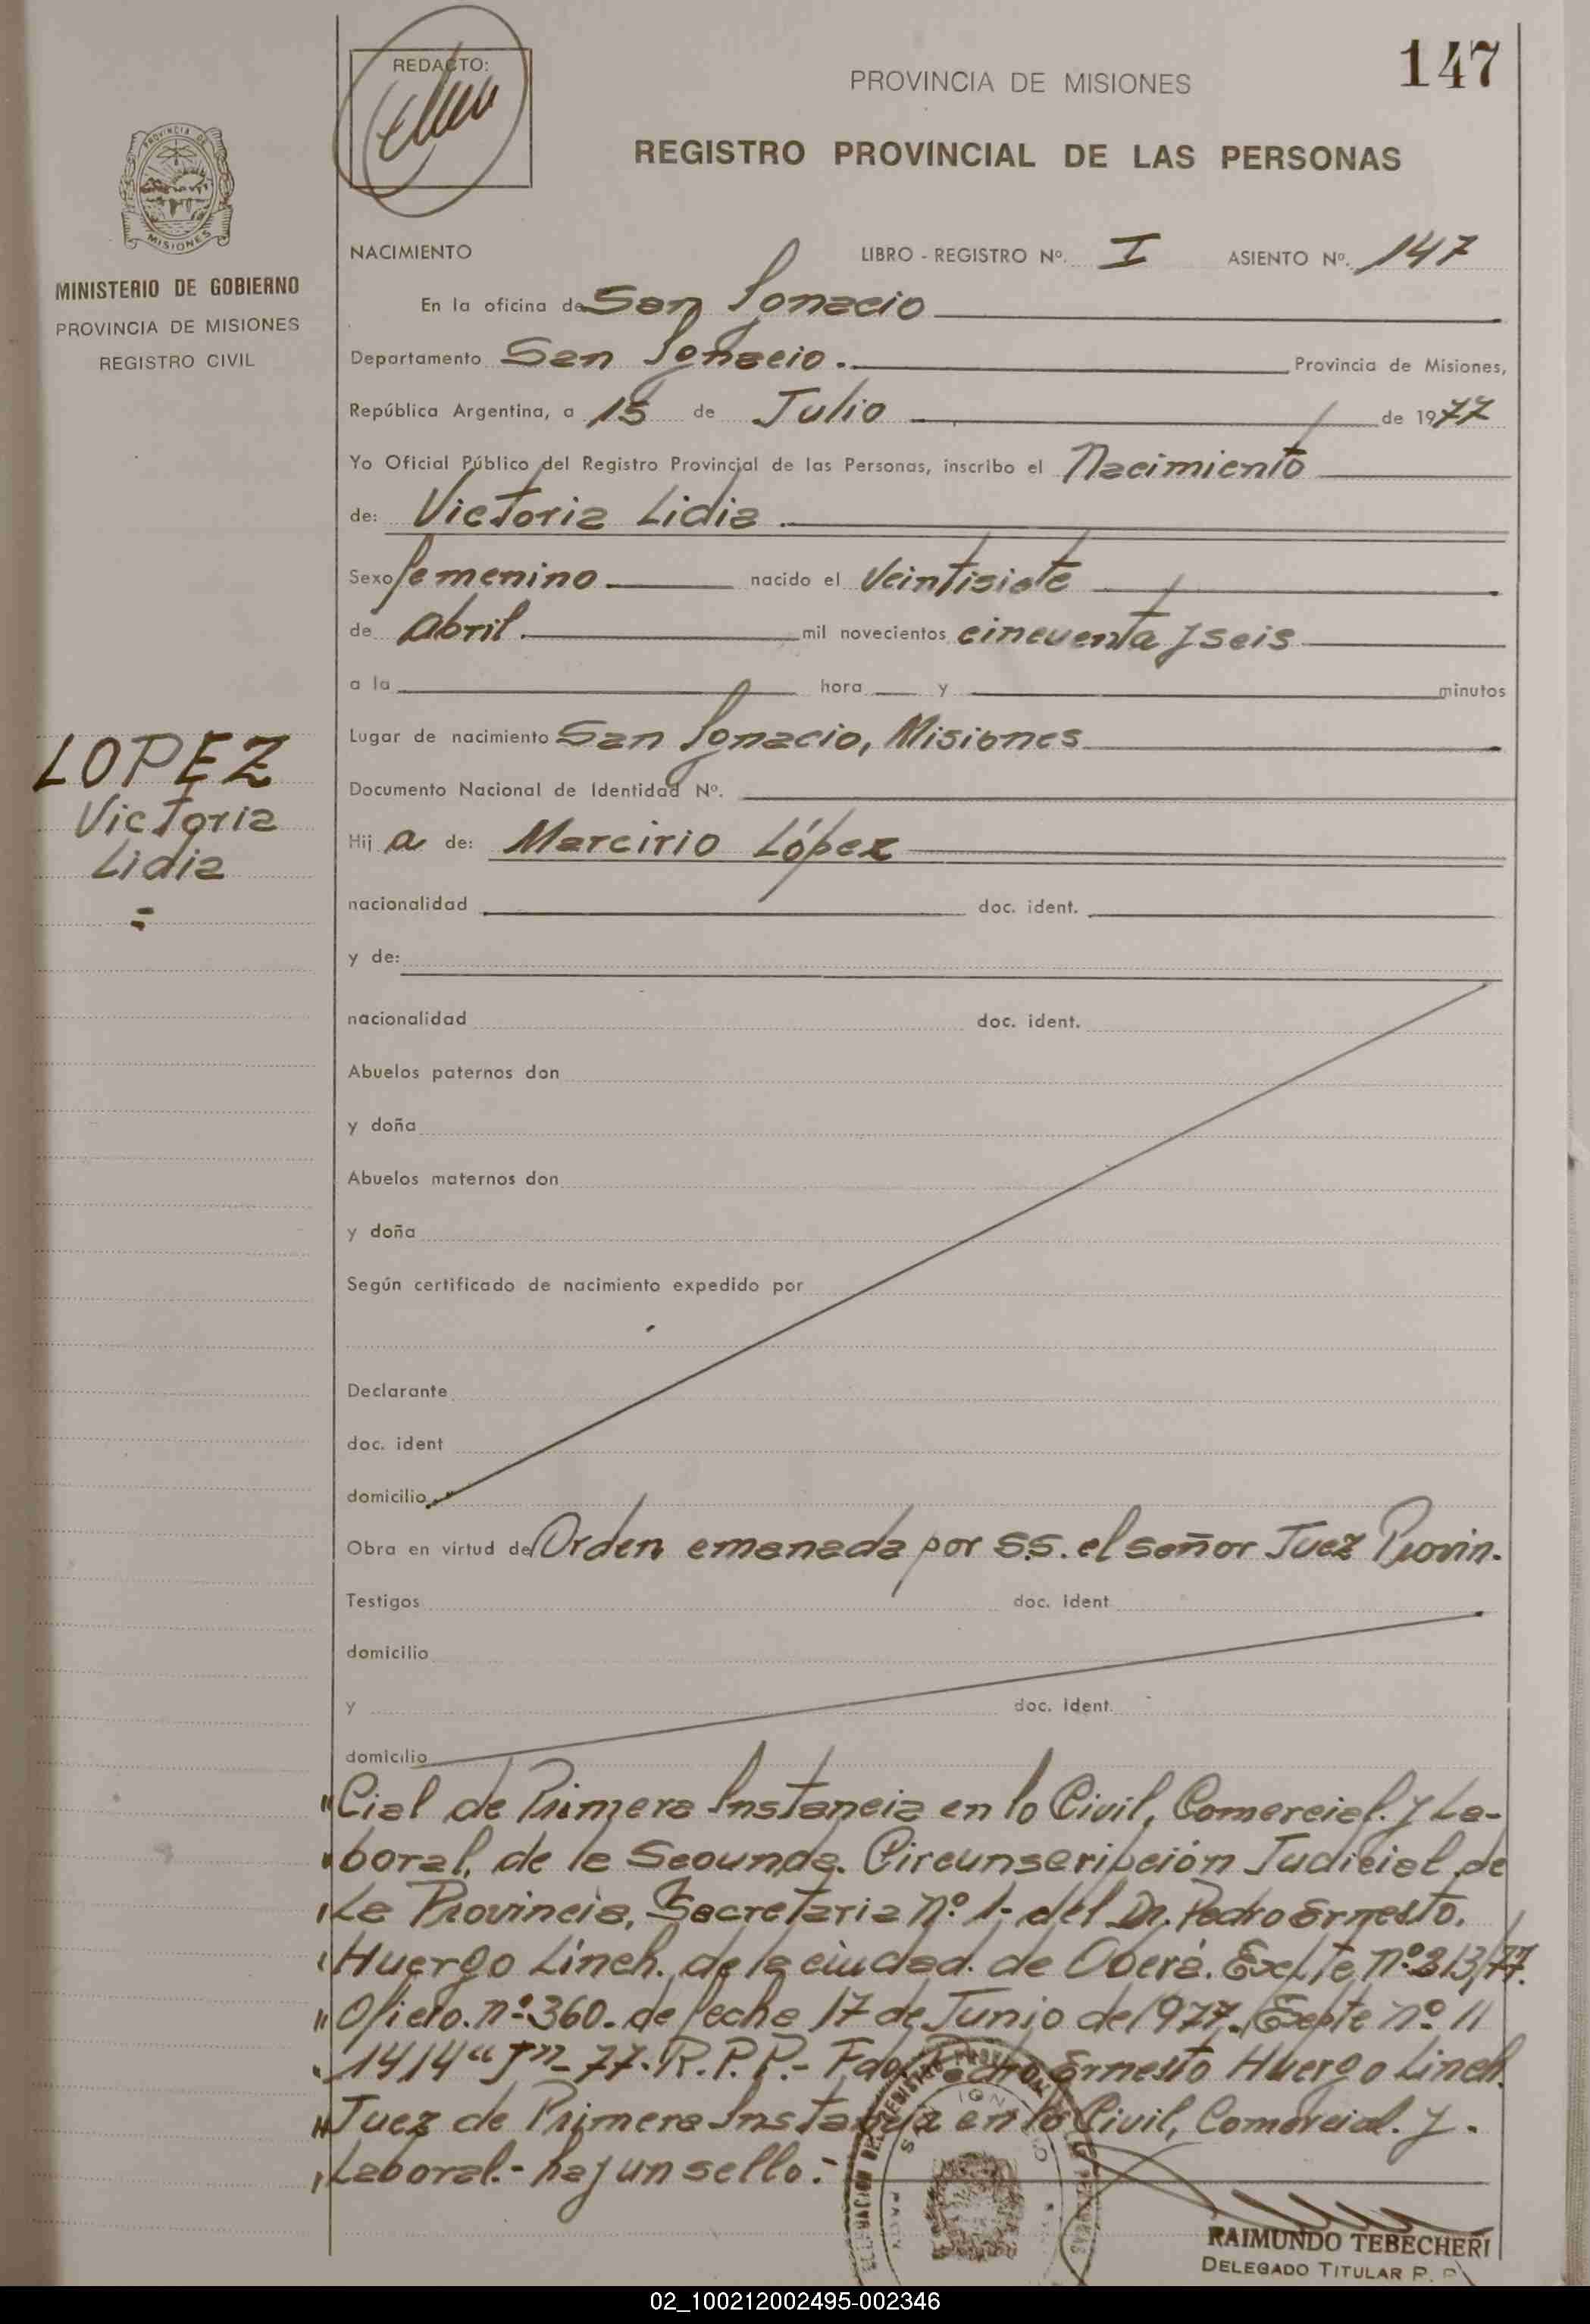 REDACTO:
PROVINCIA DE MISIONES
147
REGISTRO PROVINCIAL DE LAS PERSONAS
PROVINCIA DE
MISIONES
MINISTERIO DE GOBIERNO
PROVINCIA DE MISIONES
REGISTRO CIVIL
NACIMIENTO LIBRO - REGISTRO Nº. I ASIENTO Nº. 147
En la oficina de San Ignacio
Departamento San Ignacio. Provincia de Misiones,
República Argentina, a 15 de Julio de 1977
Yo Oficial Público del Registro Provincial de las Personas, inscribo el Nacimiento
de: Victoria Lidia.
Sexo femenino nacido el Veintisiete
de abril. mil novecientos cincuenta y seis
a la hora y minutos
Lugar de nacimiento San Ignacio, Misiones
LOPEZ
Victoria
Lidia
=
Documento Nacional de Identidad Nº.
Hij a de: Marcirio López
nacionalidad doc. ident.
y de:
nacionalidad doc. ident.
Abuelos paternos don
y doña
Abuelos maternos don
y doña
Según certificado de nacimiento expedido por
Declarante
doc. ident
domicilio
Obra en virtud de Orden emanada por S.S. el señor Juez Provin.
Testigos doc. ident
domicilio
y doc. ident.
domicilio
"Cial de Primera Instancia en lo Civil, Comercial. y La-
"boral, de la Segunda. Circunscripción Judicial de
"La Provincia, Secretaria nº 1- del Dr. Pedro Ernesto.
"Huergo Linch. de la ciudad. de Oberá. Expte nº 213/77.
"Oficio. nº 360- de fecha 17 de Junio de 1977. Expte nº 11
"1414 "J"- 77- R.P.P.- Fdo. Pedro Ernesto Huergo Linch.
"Juez de Primera Instancia en lo Civil, Comercial. y.
"Laboral.- hay un sello.-
RAIMUNDO TEBECHERI
DELEGADO TITULAR R. P.
02_100212002495-002346